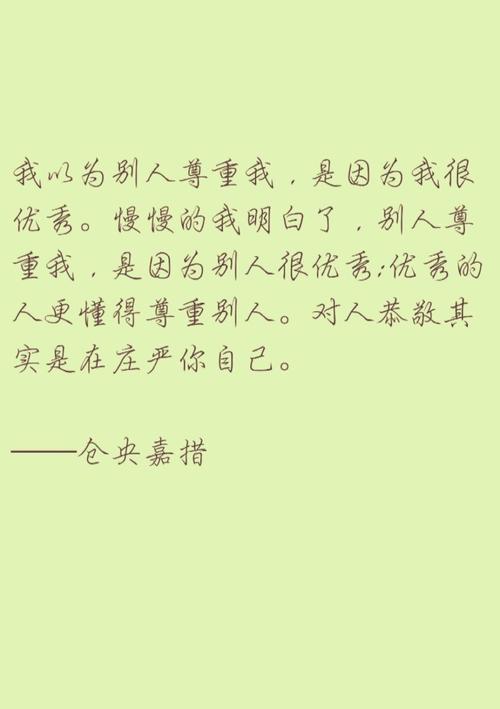 我以为别人尊重我，是因为我很
优秀。慢慢的我明白了，别人尊
重我，是因为别人很优秀;优秀的
人更懂得尊重别人。对人恭敬其
实是在庄严你自己。
——仓央嘉措